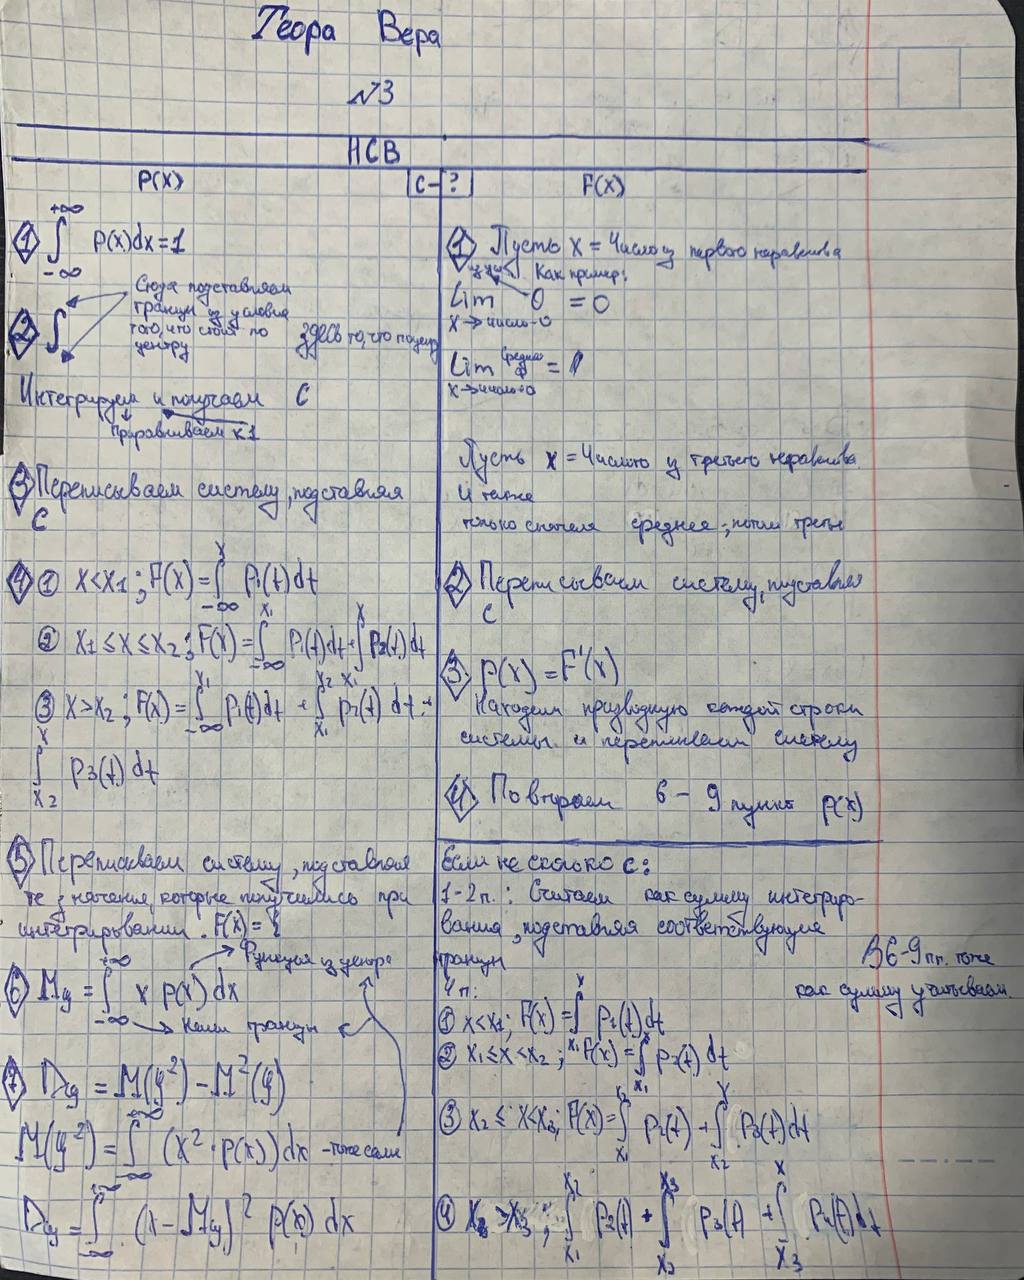 Теора Вера
№3
НСВ
P(X)
C-?
F(X)
1 ∫ +∞ -∞ P(x)dx=1
Сюда подставляем
границы из условия
того, что стоит по
центру
2 ∫ здесь то, что по центру
Интегрируем и получаем C
Приравниваем к 1
3 Переписываем систему, подставляя
C
4 ① x<x1 ; F(x) = ∫ x -∞ p1(t)dt
② x1 ≤ x ≤ x2 ; F(x) = ∫ x1 -∞ p1(t)dt + ∫ x x1 p2(t)dt
③ x>x2 ; F(x) = ∫ x1 -∞ p1(t)dt + ∫ x2 x1 p2(t)dt +
∫ x x2 p3(t)dt
5 Переписываем систему, подставляя
те значения, которые получились при
интегрировании. F(x) = {
Функция из центра
6 My = ∫ +∞ -∞ x p(x) dx
Наши границы
7 Dy = M(y²) - M²(y)
M(y²) = ∫ +∞ -∞ (x² · p(x)) dx - тоже сами
Dy = ∫ +∞ -∞ (x - My)² p(x) dx
1 Пусть x = Число из первого неравенства
Как пример:
Lim 0 = 0
x→число-0
Lim Среднее =
x→число+0
Пусть x = Число из третьего неравенства
И также
только сначала среднее, потом третье
2 Переписываем систему, подставляя
C
3 p(x) = F'(x)
Находим производную каждой строки
системы и переписываем систему
4 Повторяем 6 – 9 пункт p(x)
Если несколько c:
1-2п.: Считаем как сумму интегриро-
вания, подставляя соответствующие
границы
В 6-9 пп. тоже
как сумму учитываем.
4п:
① x<x1; F(x) = ∫ x x1 p1(t)dt
② x1≤x<x2 ; F(x) = ∫ x x1 p2(t)dt
③ x2 ≤ x<x3; F(x) = ∫ x2 x1 p2(t) + ∫ x x2 p3(t)dt
④ x>x3 ; ∫ x2 x1 p2(t) + ∫ x3 x2 p3(t) + ∫ x x3 p4(t)dt